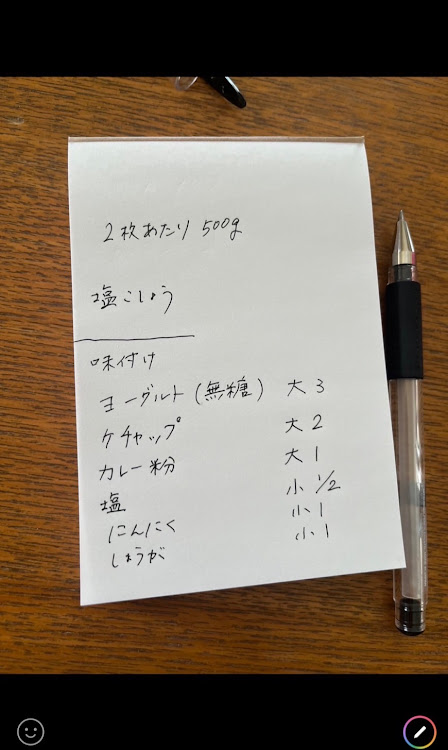 2枚あたり 500g
塩こしょう
味付け
ヨーグルト(無糖) 大 3
ケチャップ 大 2
カレー粉 大 1
塩 小 1/2
にんにく 小 1
しょうが 小 1